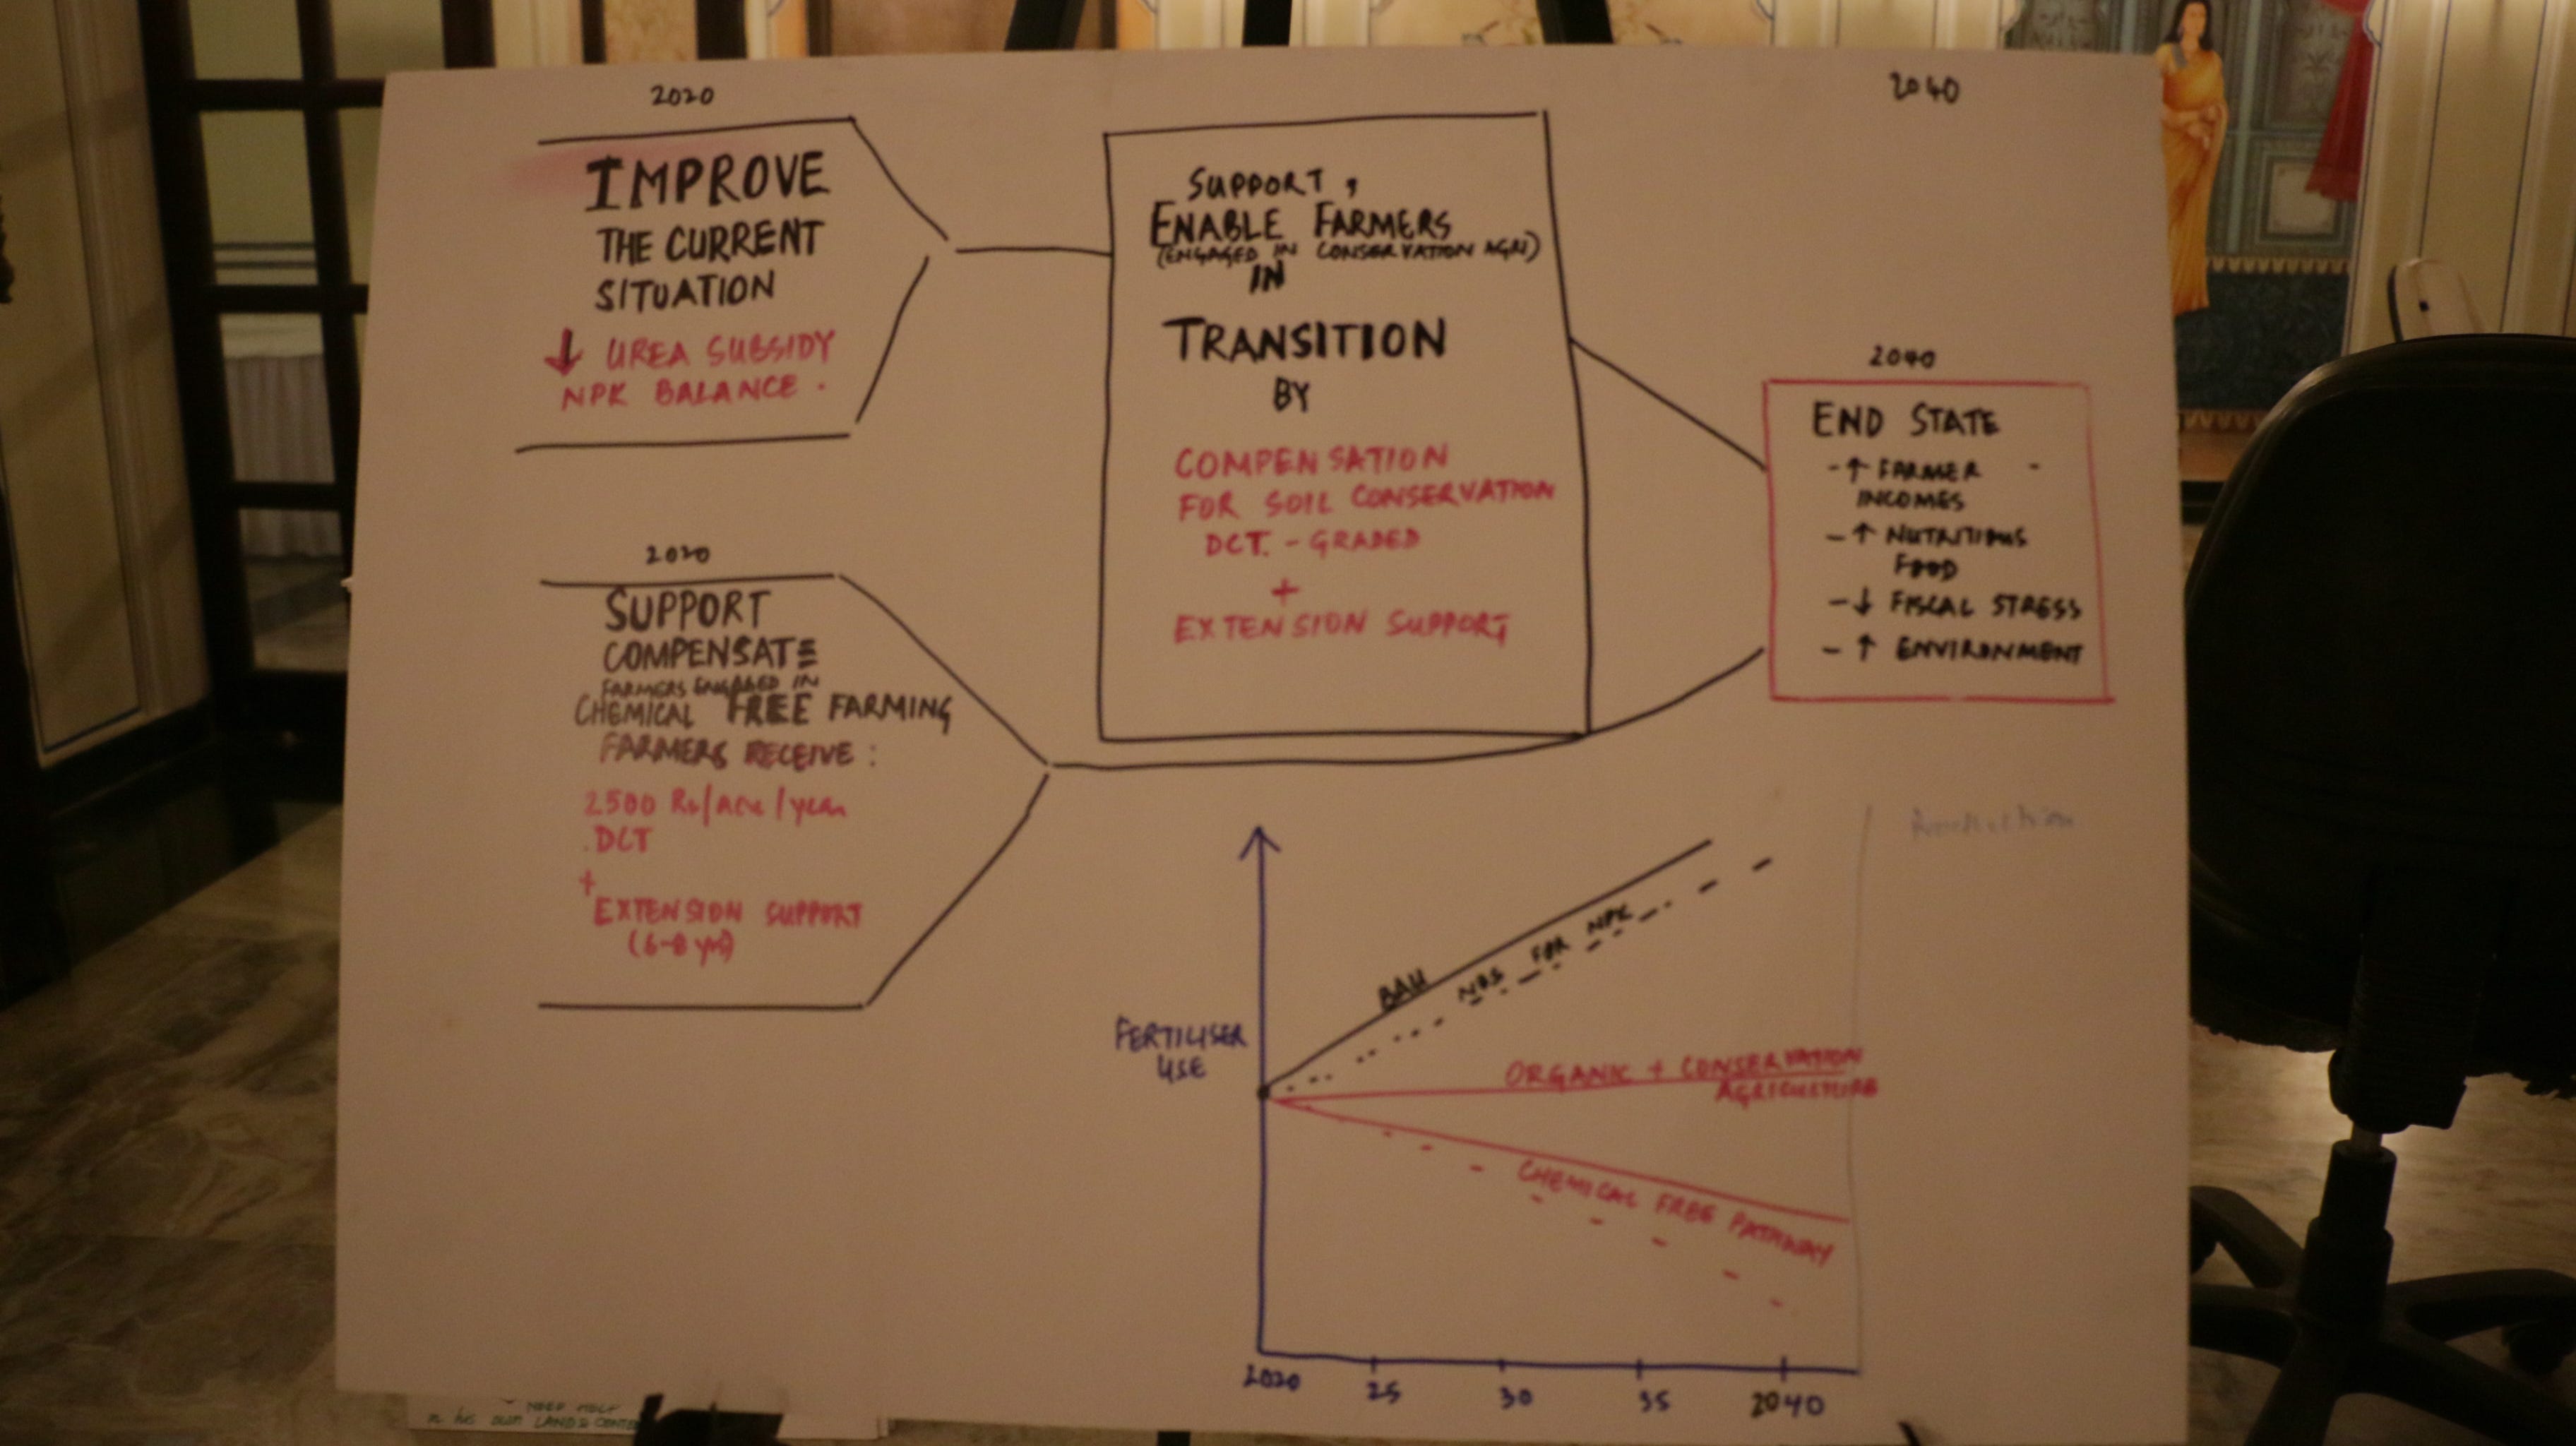 2020
IMPROVE
THE CURRENT
SITUATION
↓ UREA SUBSIDY
NPK BALANCE.
2020
SUPPORT
COMPENSATE
FARMERS ENGAGED IN
CHEMICAL FREE FARMING
FARMERS RECEIVE:
2500 Rs/acre/year
.DCT
+
EXTENSION SUPPORT
(6-8 yrs)
SUPPORT,
ENABLE FARMERS
(ENGAGED IN CONSERVATION AGRI)
IN
TRANSITION
BY
COMPENSATION
FOR SOIL CONSERVATION
DCT. - GRADED
+
EXTENSION SUPPORT
2040
2040
END STATE
- ↑ FARMER -
INCOMES
- ↑ NUTRITIOUS
FOOD
- ↓ FISCAL STRESS
- ↑ ENVIRONMENT
Production
BAU
NBS FOR NPK
FERTILISER
USE
ORGANIC + CONSERVATION
AGRICULTURE
CHEMICAL FREE PATHWAY
2020 25 30 35 2040
NEED HELP
in his own LAND &